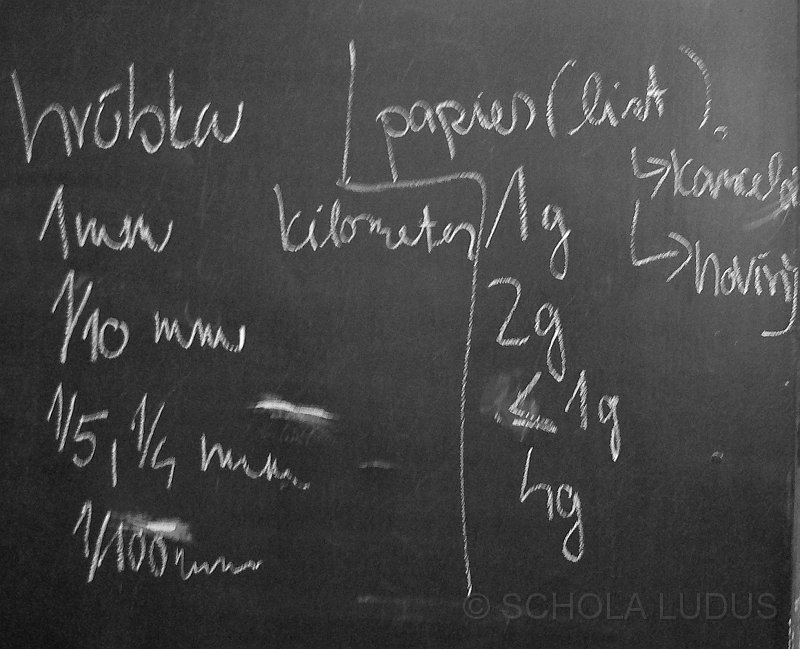 hrúbka papier (list).
→ kancelá
1mm kilometer 1g
→ noviny
1/10 mm 2g
1/5, 1/4 mm ≤ 1g
1/100 mm 4g
© SCHOLA LUDUS